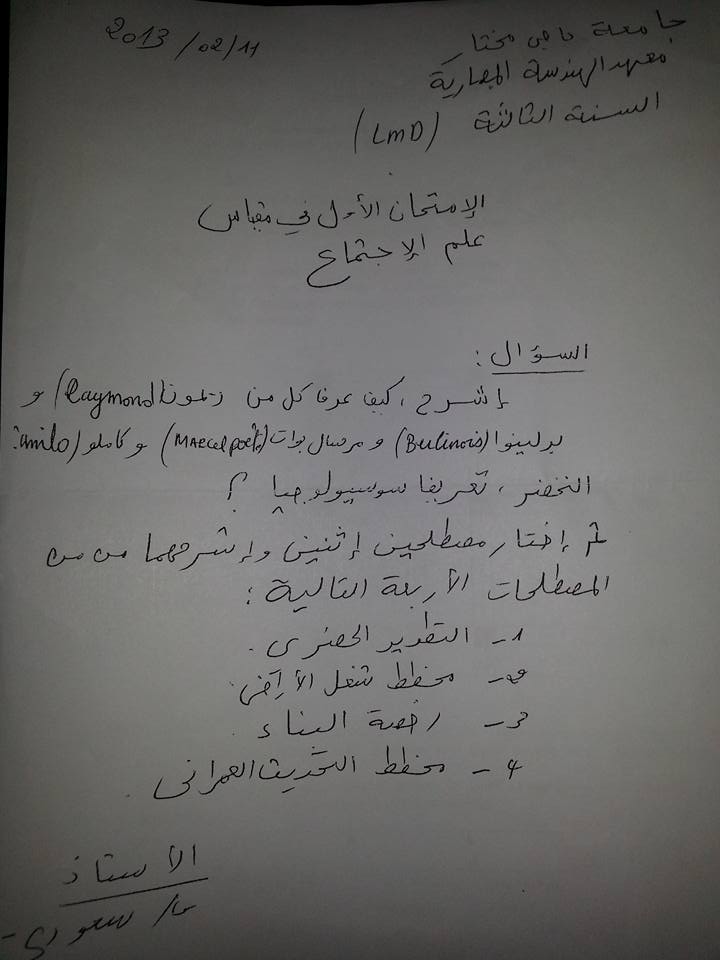 جامعة باجي مختار
2013/02/11
معهد الهندسة المعمارية
السنة الثالثة (LMD)
الإمتحان الأول في مقياس
علم الإجتماع
السؤال :
إشرح ، كيف عرفا كل من ريمون (Raymond) و
برلينوا (Berlinois) و مرسال بوات (Marcel poëte) و كاملو
التحضر ، تعريفا سوسيولوجيا ؟
ثم إختار مصطلحين إثنين وإشرحهما من من
المصطلحات الأربعة التالية :
1- التطوير الحضري .
2- مخطط شغل الأراضي
3- رخصة البناء
4- مخطط التحديث العمراني
الأستاذ
سعودي